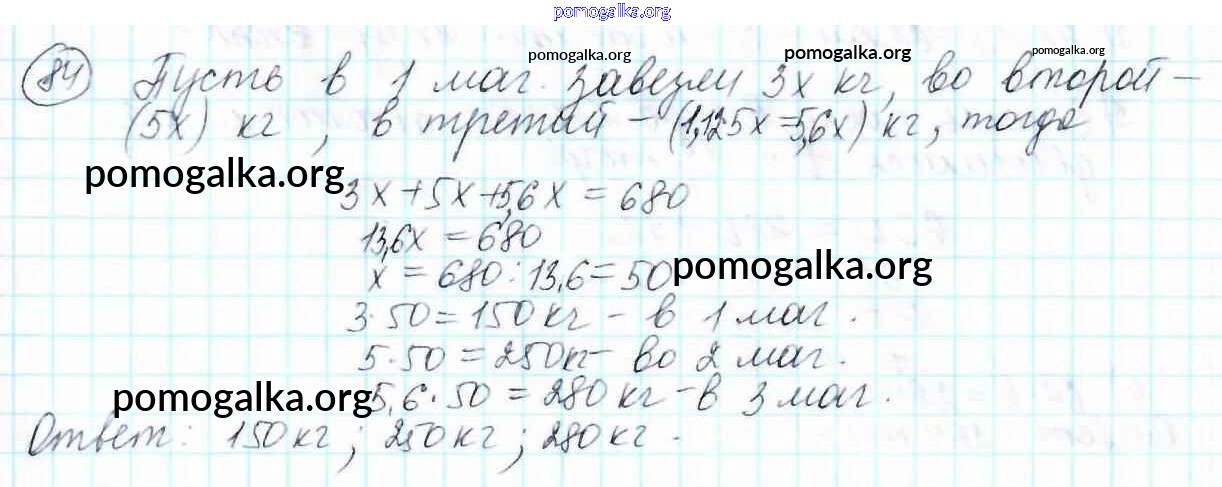 pomogalka.org
pomogalka.org pomogalka.org pomogalka.org
84 Пусть в 1 маг. завезли 3х кг, во второй –
(5х) кг, в третий – (1,12·5х=5,6х) кг, тогда
pomogalka.org
3х+5х+5,6х = 680
13,6х = 680
х = 680 : 13,6 = 50
pomogalka.org
3·50 = 150 кг – в 1 маг.
5·50 = 250 кг – во 2 маг.
pomogalka.org
5,6·50 = 280 кг – в 3 маг.
Ответ: 150 кг; 250 кг; 280 кг.